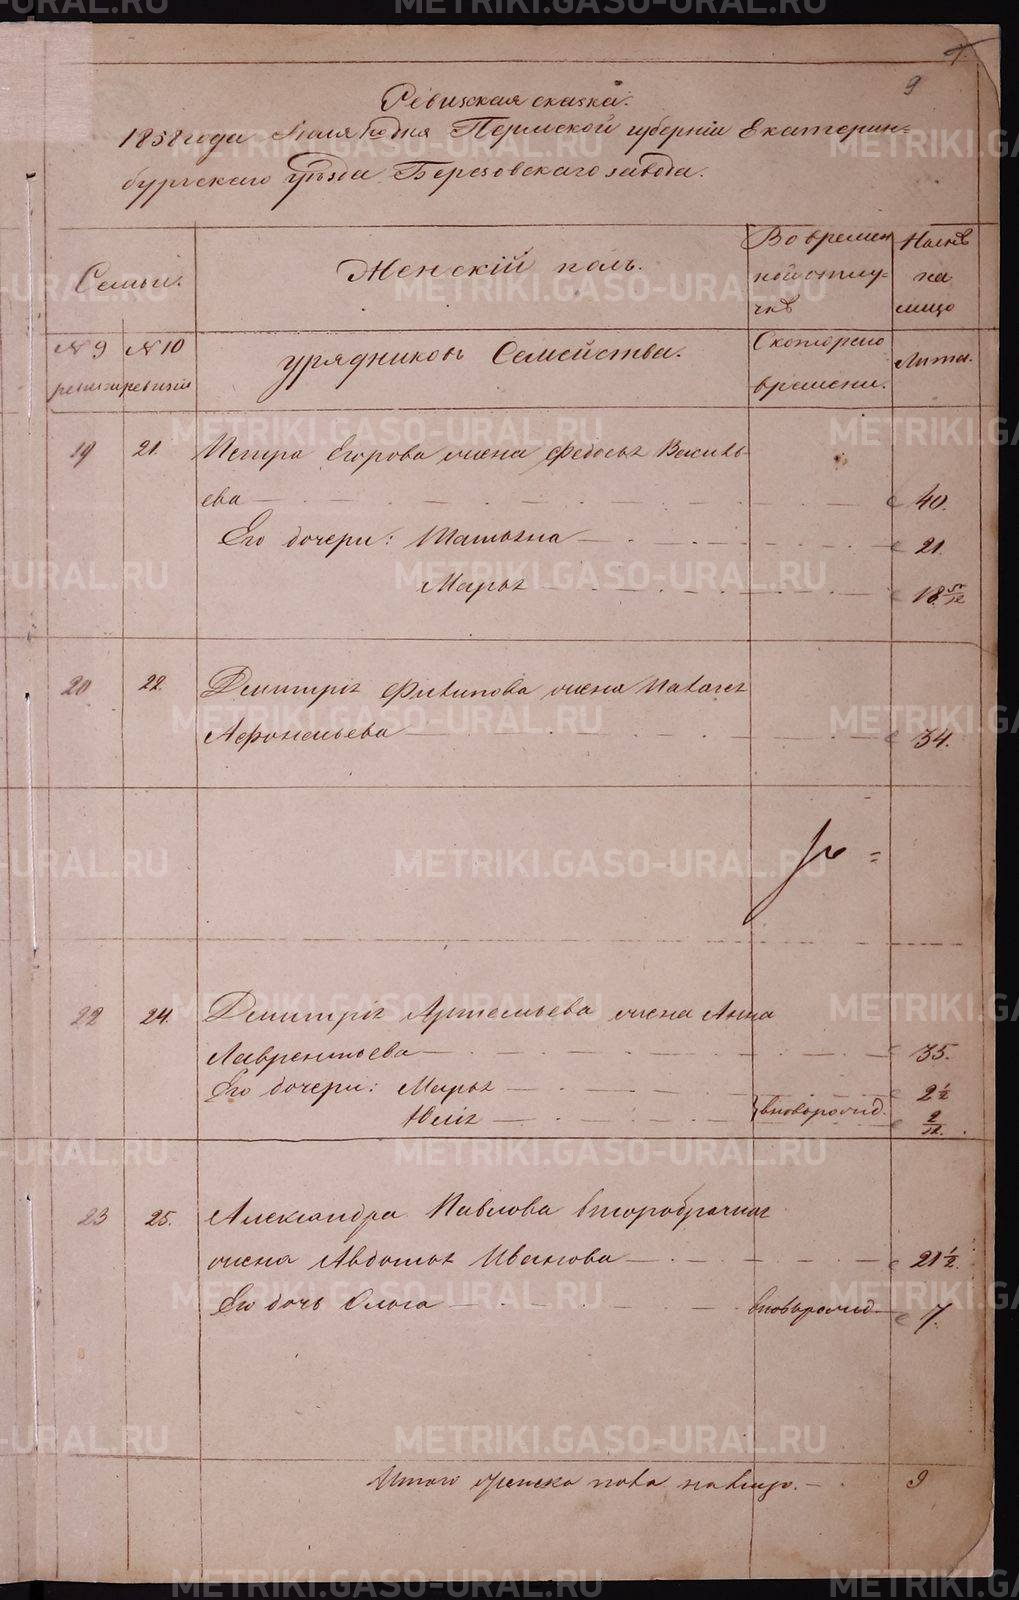 9
Ревизская сказка.
1858 года Июля дня Пермской губерніи Екатерин=
бургскаго уѣзда Березовскаго завода.
Семьи.
Женскій полъ.
Во времен
ной отлу-
чкѣ
Нынѣ
на
лицо
№ 9
ревизіи
№ 10
ревизіи
урядниковъ Семейства.
Скотораго
времени.
Лѣта.
19 21. Петра Егорова жена Федосья Василь-
ева 40.
Его дочери: Татьяна 21.
Марья 18
20 22. Дмитрія Филипова жена
Афонасьева 34.
22 24. Дмитрія Артемьева жена Анна
Лаврентьева 35.
Его дочери: Марья 2 1/2
Юлія вноворожд. 2/12.
23 25. Александра Павлова второбрачная
жена Авдотья Иванова 21 1/2.
Его дочь Ольга вноворожд. 7.
Итого женска пола налицо. 9
METRIKI.GASO-URAL.RU